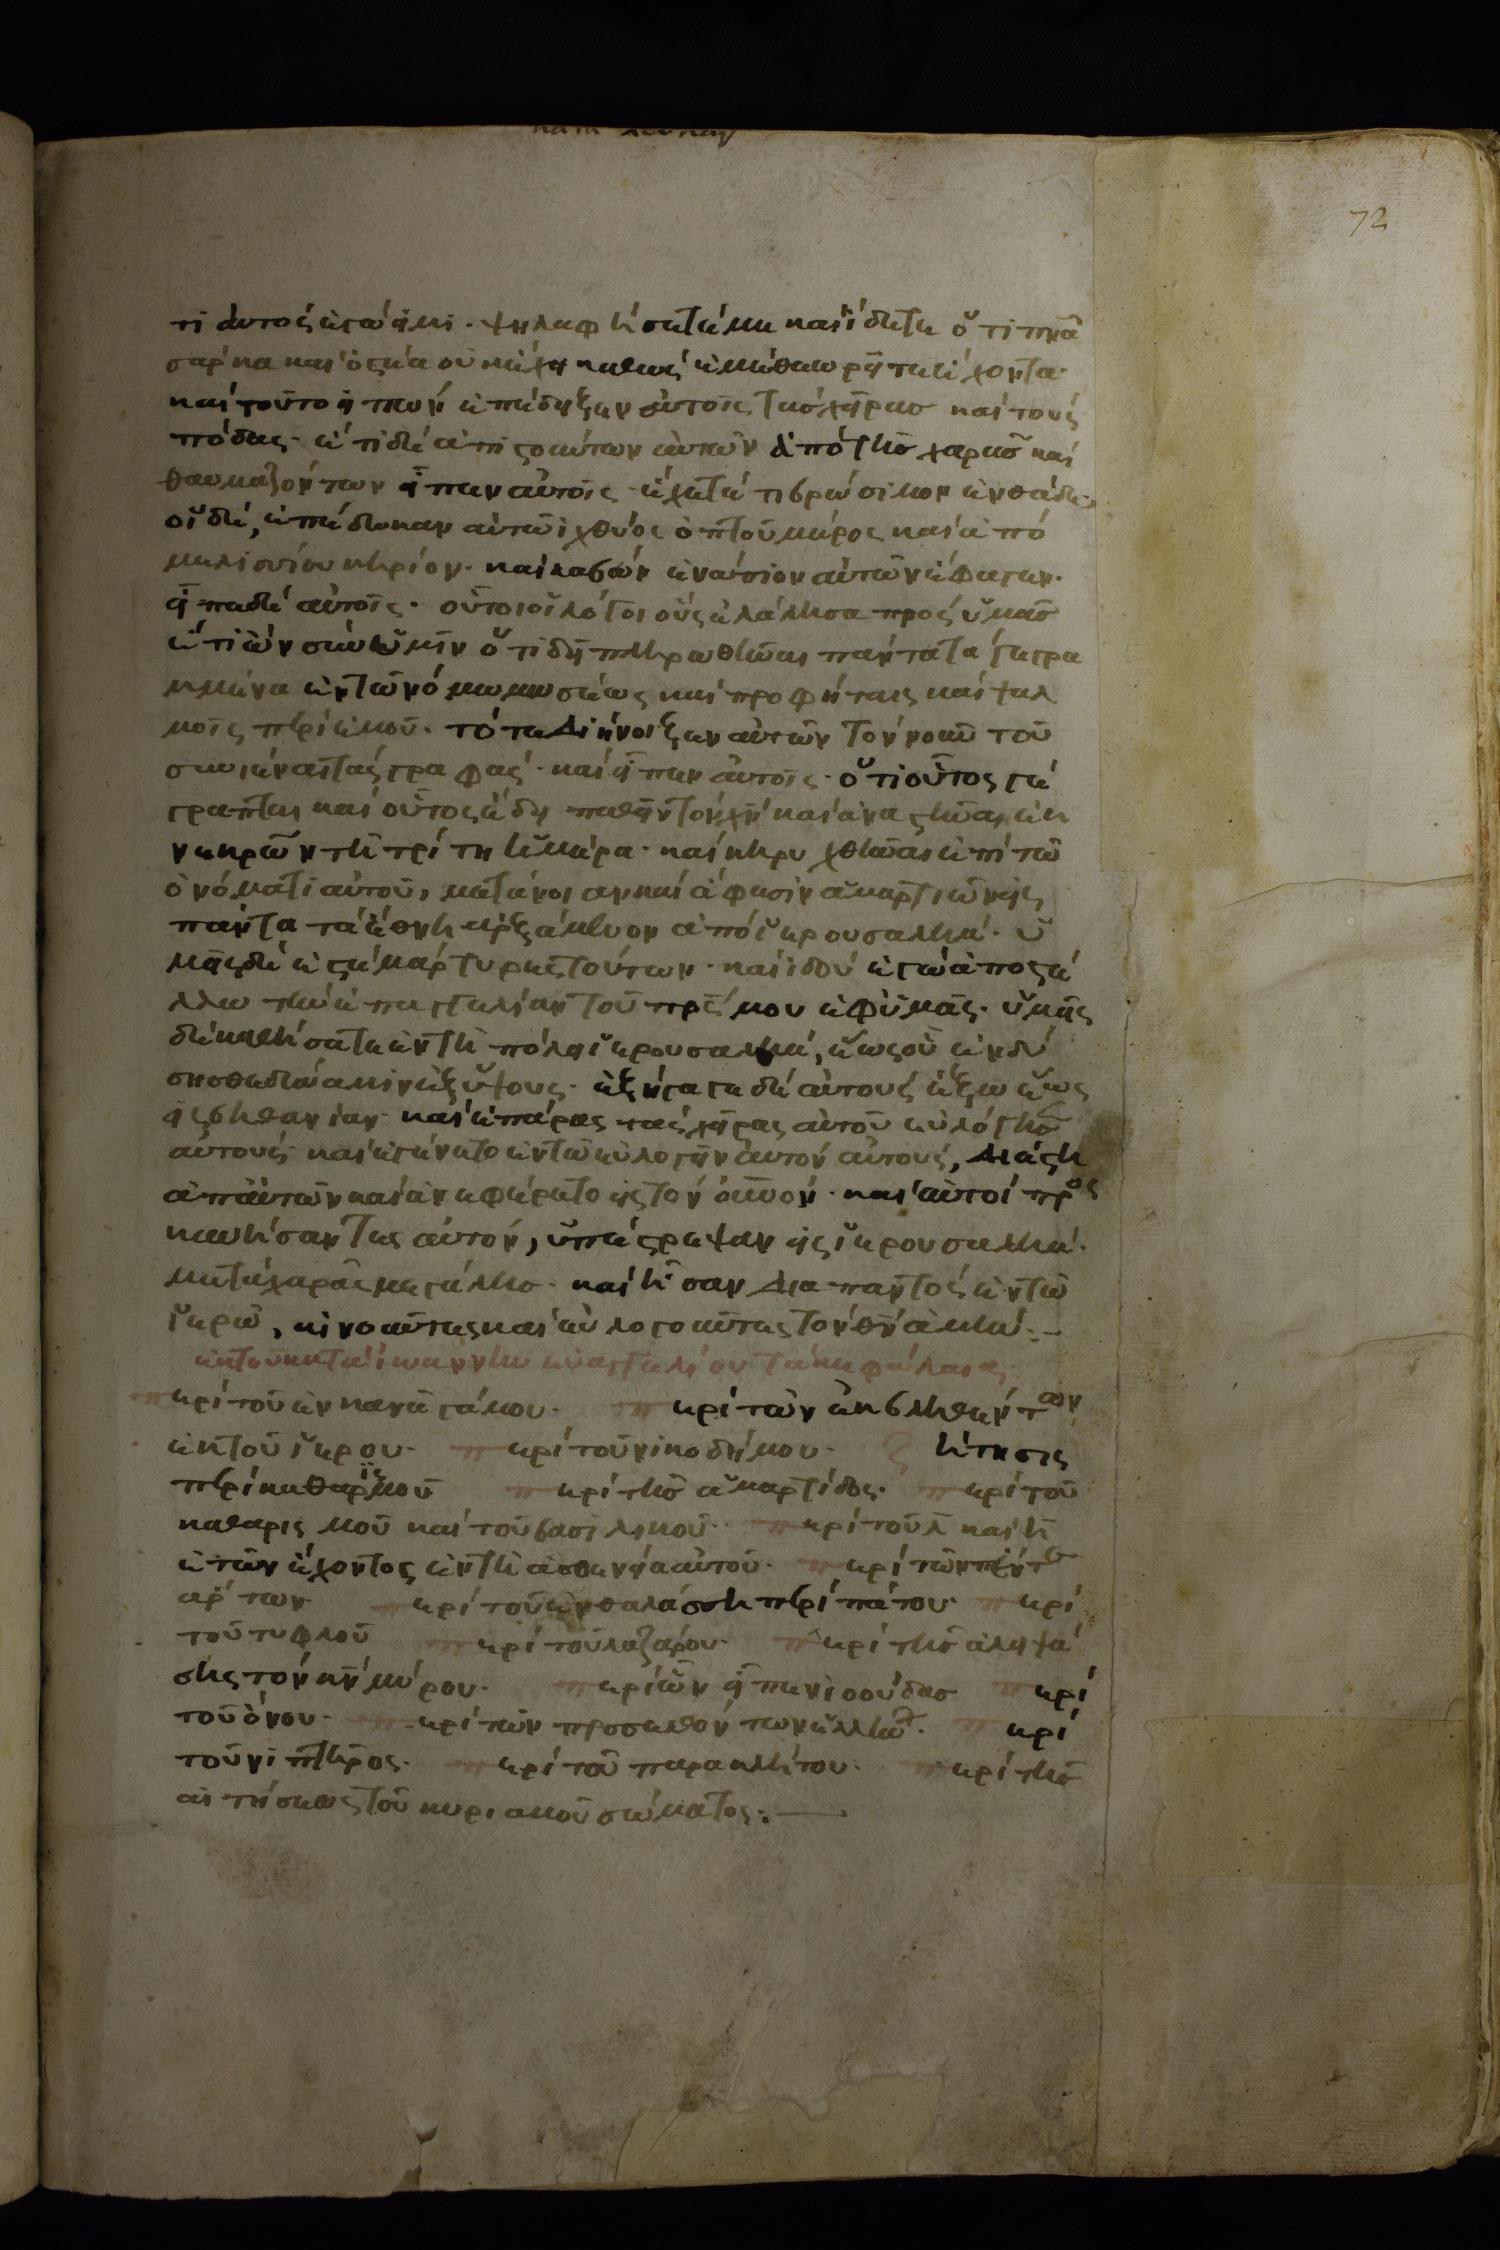 κατὰ λουκαν
72
τι αὐτός ἐγώ εἰμι· ψηλαφήσατέ με καὶ ἴδετε ὅτι πνᾶ
σάρκα καὶ ὀστέα οὐκ ἔχει καθὼς ἐμὲ θεωρεῖτε ἔχοντα·
καὶ τοῦτο εἰπὼν ἐπέδειξεν αὐτοῖς τὰς χεῖρας καὶ τοὺς
πόδας· ἔτι δὲ ἀπιστούντων αὐτῶν ἀπὸ τῆς χαρᾶς καὶ
θαυμαζόντων εἶπεν αὐτοῖς· ἔχετέ τι βρώσιμον ἐνθάδε·
οἱ δὲ, ἐπέδωκαν αὐτῶ ἰχθύος ὀπτοῦ μέρος καὶ ἀπὸ
μελισσίου κηρίον· καὶ λαβὼν ἐνώπιον αὐτῶν ἔφαγεν·
εἶπε δὲ αὐτοῖς· οὗτοι οἱ λόγοι οὓς ἐλάλησα πρὸς ὑμᾶς
ἔτι ὢν σὺν ὑμῖν ὅτι δεῖ πληρωθῆναι πάντα τὰ γεγρα
μμένα ἐν τῶ νόμω μωσέως καὶ προφήταις καὶ ψαλ
μοῖς περὶ ἐμοῦ· τότε διήνοιξεν αὐτῶν τὸν νοῦν τοῦ
συνιέναι τὰς γραφάς· καὶ εἶπεν αὐτοῖς· ὅτι οὕτως γέ
γραπται καὶ οὕτως ἔδει παθεῖν τὸν χν καὶ ἀναστῆναι ἐκ
νεκρῶν τῆ τρίτη ἡμέρα· καὶ κηρυχθῆναι ἐπὶ τῶ
ὀνόματι αὐτοῦ, μετάνοιαν καὶ ἄφεσιν ἁμαρτιῶν εἰς
πάντα τὰ ἔθνη ἀρξάμενον ἀπὸ ἱερουσαλήμ· ὑ
μεῖς δέ ἐστέ μάρτυρες τούτων· καὶ ἰδοὺ ἐγὼ ἀποστέ
λλω τὴν ἐπαγγελίαν τοῦ πρς μου ἐφ' ὑμᾶς· ὑμεῖς
δὲ καθήσατε ἐν τῆ πόλει ἱερουσαλήμ, ἕως οὗ ἐνδύ
σησθε δύναμιν ἐξ ὕψους· ἐξήγαγε δὲ αὐτοὺς ἔξω ἕως
εἰς βηθανίαν· καὶ ἐπάρας τὰς χεῖρας αὐτοῦ εὐλόγησ
αὐτούς· καὶ ἐγένετο ἐν τῶ εὐλογεῖν αὐτὸν αὐτοὺς, διέστη
ἀπ' αὐτῶν καὶ ἀνεφέρετο εἰς τὸν οὐνον· καὶ αὐτοὶ προς
κυνήσαντες αὐτόν, ὑπέστρεψαν εἰς ἱερουσαλήμ·
μετὰ χαρᾶς μεγάλης· καὶ ἦσαν διαπαντὸς ἐν τῶ
ἱερῶ, αἰνοῦντες καὶ εὐλογοῦντες τὸν θν ἀμήν:-
ἐκ τοῦ κατὰ ἰωάννην εὐαγγελίου τὰ κεφάλαια
περὶ τοῦ ἐν κανᾶ γάμου· περὶ τῶν ἐκβληθέντων
ἐκ τοῦ ἱεροῦ· περὶ τοῦ νικοδήμου· ζήτησις
περὶ καθαρισμοῦ περὶ τῆς σαμαρείτιδος· περὶ τοῦ
καθαρισμοῦ καὶ τοῦ βασιλικοῦ· περὶ τοῦ λ καὶ η
ἐτῶν ἔχοντος ἐν τῆ ἀσθενεία αὐτοῦ· περὶ τῶν πέντε
ἄρτων· περὶ τοῦ ἐν θαλάσση περίπάτου· περὶ
τοῦ τυφλοῦ περὶ τοῦ λαζάρου· περὶ τῆς ἀλειψά
σης τὸν κν μύρου· περὶ ὧν εἶπεν ἰούδας περὶ
τοῦ ὄνου· περὶ τῶν προσελθόντων ἑλλήνων· περὶ
τοῦ νιπτῆρος· περὶ τοῦ παρακλήτου· περὶ τῆς
αἰτήσεως τοῦ κυριακοῦ σώματος:—